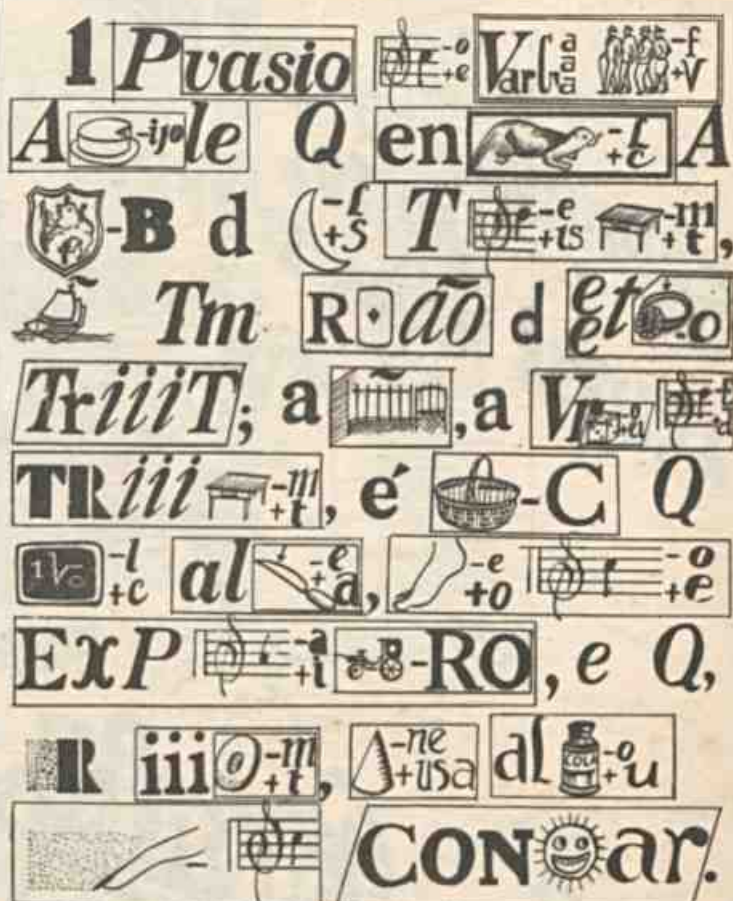 1 Pvasio -o +e VarG a a a -f +V
A -ijo le Q en -f +c A
-B d -l +S T -e +is -m +t ,
Tm R ão d e e t -o
TriiiT; a , a V
TRiii -m +t , é -C Q
1 V2 -l +c al -e +a , -e +o -o +e
ExP -a +i -RO , e Q,
R iii -m +t , -ne +usa al COLA -o +u
- CON ar.